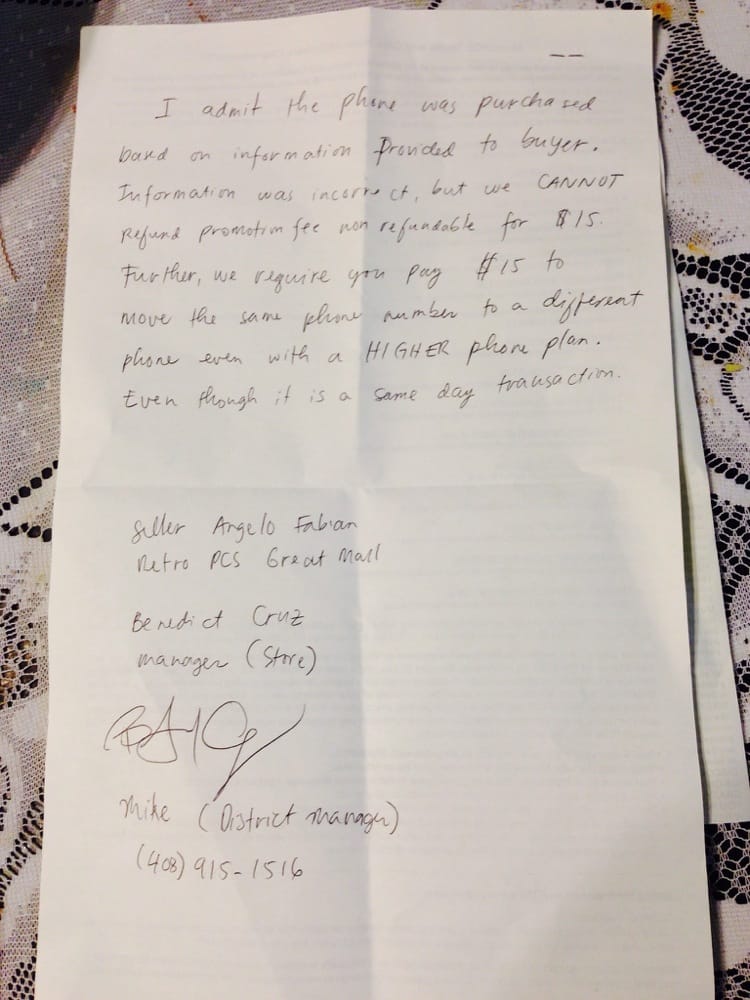 I admit the phone was purchased
based on information provided to buyer.
Information was incorrect, but we CANNOT
refund promotion fee non refundable for $15.
Further, we require you pay $15 to
move the same phone number to a different
phone even with a HIGHER phone plan.
Even though it is a same day transaction.
Seller Angelo Fabian
Metro PCS Great Mall
Benedict Cruz
manager (Store)
Mike (District manager)
(408) 915-1516